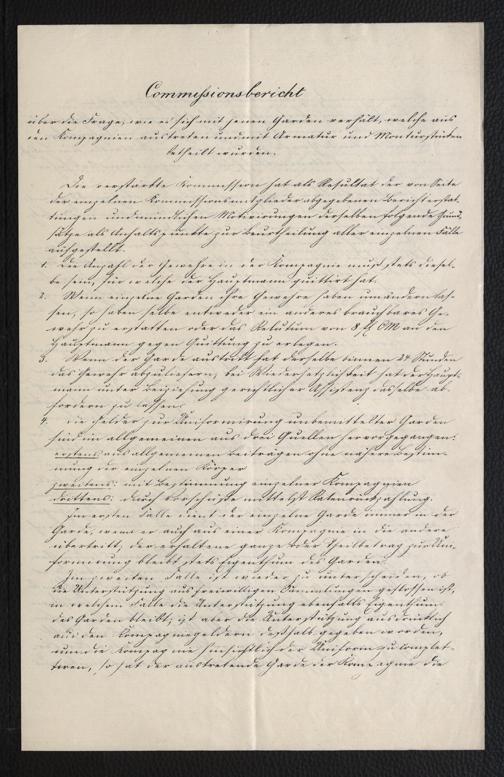 Commissionsbericht
über die Frage, wie es sich mit jenen Garden verhält, welche aus
den Kompagnien austreten und mit Armatur und Monturstücken
betheilt wurden.
Die verstärkte Kommission hat als Resultat der von Seite
der einzelnen Kommissionsmitglieder abgegebenen Berichterstat-
tungen und mündlichen Motivirungen derselben folgende Grund-
sätze als Anhaltspunkte zur Beurtheilung aller einzelnen Fälle
aufgestellt.
1. Die Anzahl der Gewehre in der Kompagnie muß stets diesel-
be sein, für welche der Hauptmann quittirt hat.
2. Wenn einzelne Garden ihre Gewehre haben umändern las-
sen, so haben selbe entweder ein anderes brauchbares Ge-
wehr zu erstatten oder das Relutum von 8 f CM an den
Hauptmann gegen Quittung zu erlegen.
3. Wenn der Garde austritt hat derselbe binnen 24 Stunden
das Gewehr abzuliefern, bei Wiedersetzlichkeit hat der Haupt-
mann unter Beiziehung gerichtlicher Assistenz dasselbe ab-
fordern zu lassen.
4. Die Gelder zur Uniformirung unbemittelter Garden
sind im allgemeinen aus drei Quellen hervorgegangen:
erstens aus allgemeinen Beiträgen ohne nähere Bestim-
mung der einzelnen Körper
zweitens: mit Bestimmung einzelner Kompagnien
drittens: durch Vorschüsse mittelst Ratenrückzahlung.
Im ersten Falle bleibt der einzelne Garde immer in der
Garde, wenn er auch aus einer Kompagnie in die andere
übertritt, der erhaltene ganze oder Theilbetrag zur Uni-
formirung bleibt stets Eigenthum des Garden.
Im zweiten Falle ist wieder zu unterscheiden, ob
die Unterstützung aus freiwilligen Sammlungen geflossen ist,
in welchem Falle die Unterstützung ebenfalls Eigenthum
des Garden bleibt, ist aber die Unterstützung ausdrücklich
aus den Kompagniegeldern deßhalb gegeben worden,
um die Kompagnie hinsichtlich der Uniform zu complet-
tiren, so hat der austretende Garde der Kompagnie die